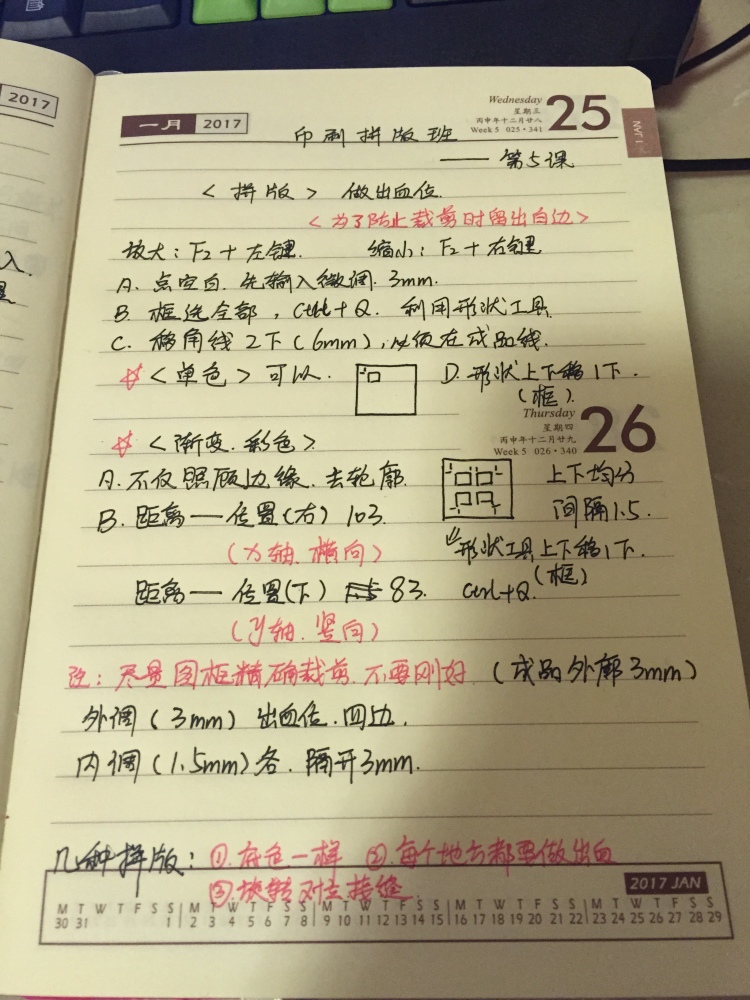 2017
一月 2017
Wednesday
星期三
丙申年十二月廿八
Week 5 025·341
25
1 JAN
印刷拼版班
——第5课
<拼版> 做出血位.
<为了防止裁剪时留出白边>
放大：F2+左键. 缩小：F2+右键
A. 点空白. 先输入微调. 3mm.
B. 框选全部，Ctrl+Q. 利用形状工具.
C. 移角线2下(6mm),必须在成品线.
☆<单色>可以.
D. 形状上下移1下.
(框).
Thursday
星期四
丙申年十二月廿九
Week 5 026·340
26
☆<渐变.彩色>
A.不仅照顾边缘.去轮廓.
上下均分
B.距离—位置(右) 103.
间隔1.5.
(X轴.横向)
形状工具上下移1下.
(框)
距离—位置(下) 83.
Ctrl+Q.
(y轴.竖向)
注：尽量图框精确裁剪.不要刚好 (成品外廓3mm)
外调(3mm) 出血位.四边.
内调(1.5mm)各.隔开3mm.
几种拼版：①.底色一样 ②.每个地方都要做出血
③.旋转对去接缝
2017 JAN
M T W T F S S M T W T F S S M T W T F S S M T W T F S S M T W T F S S
30 31 1 2 3 4 5 6 7 8 9 10 11 12 13 14 15 16 17 18 19 20 21 22 23 24 25 26 27 28 29